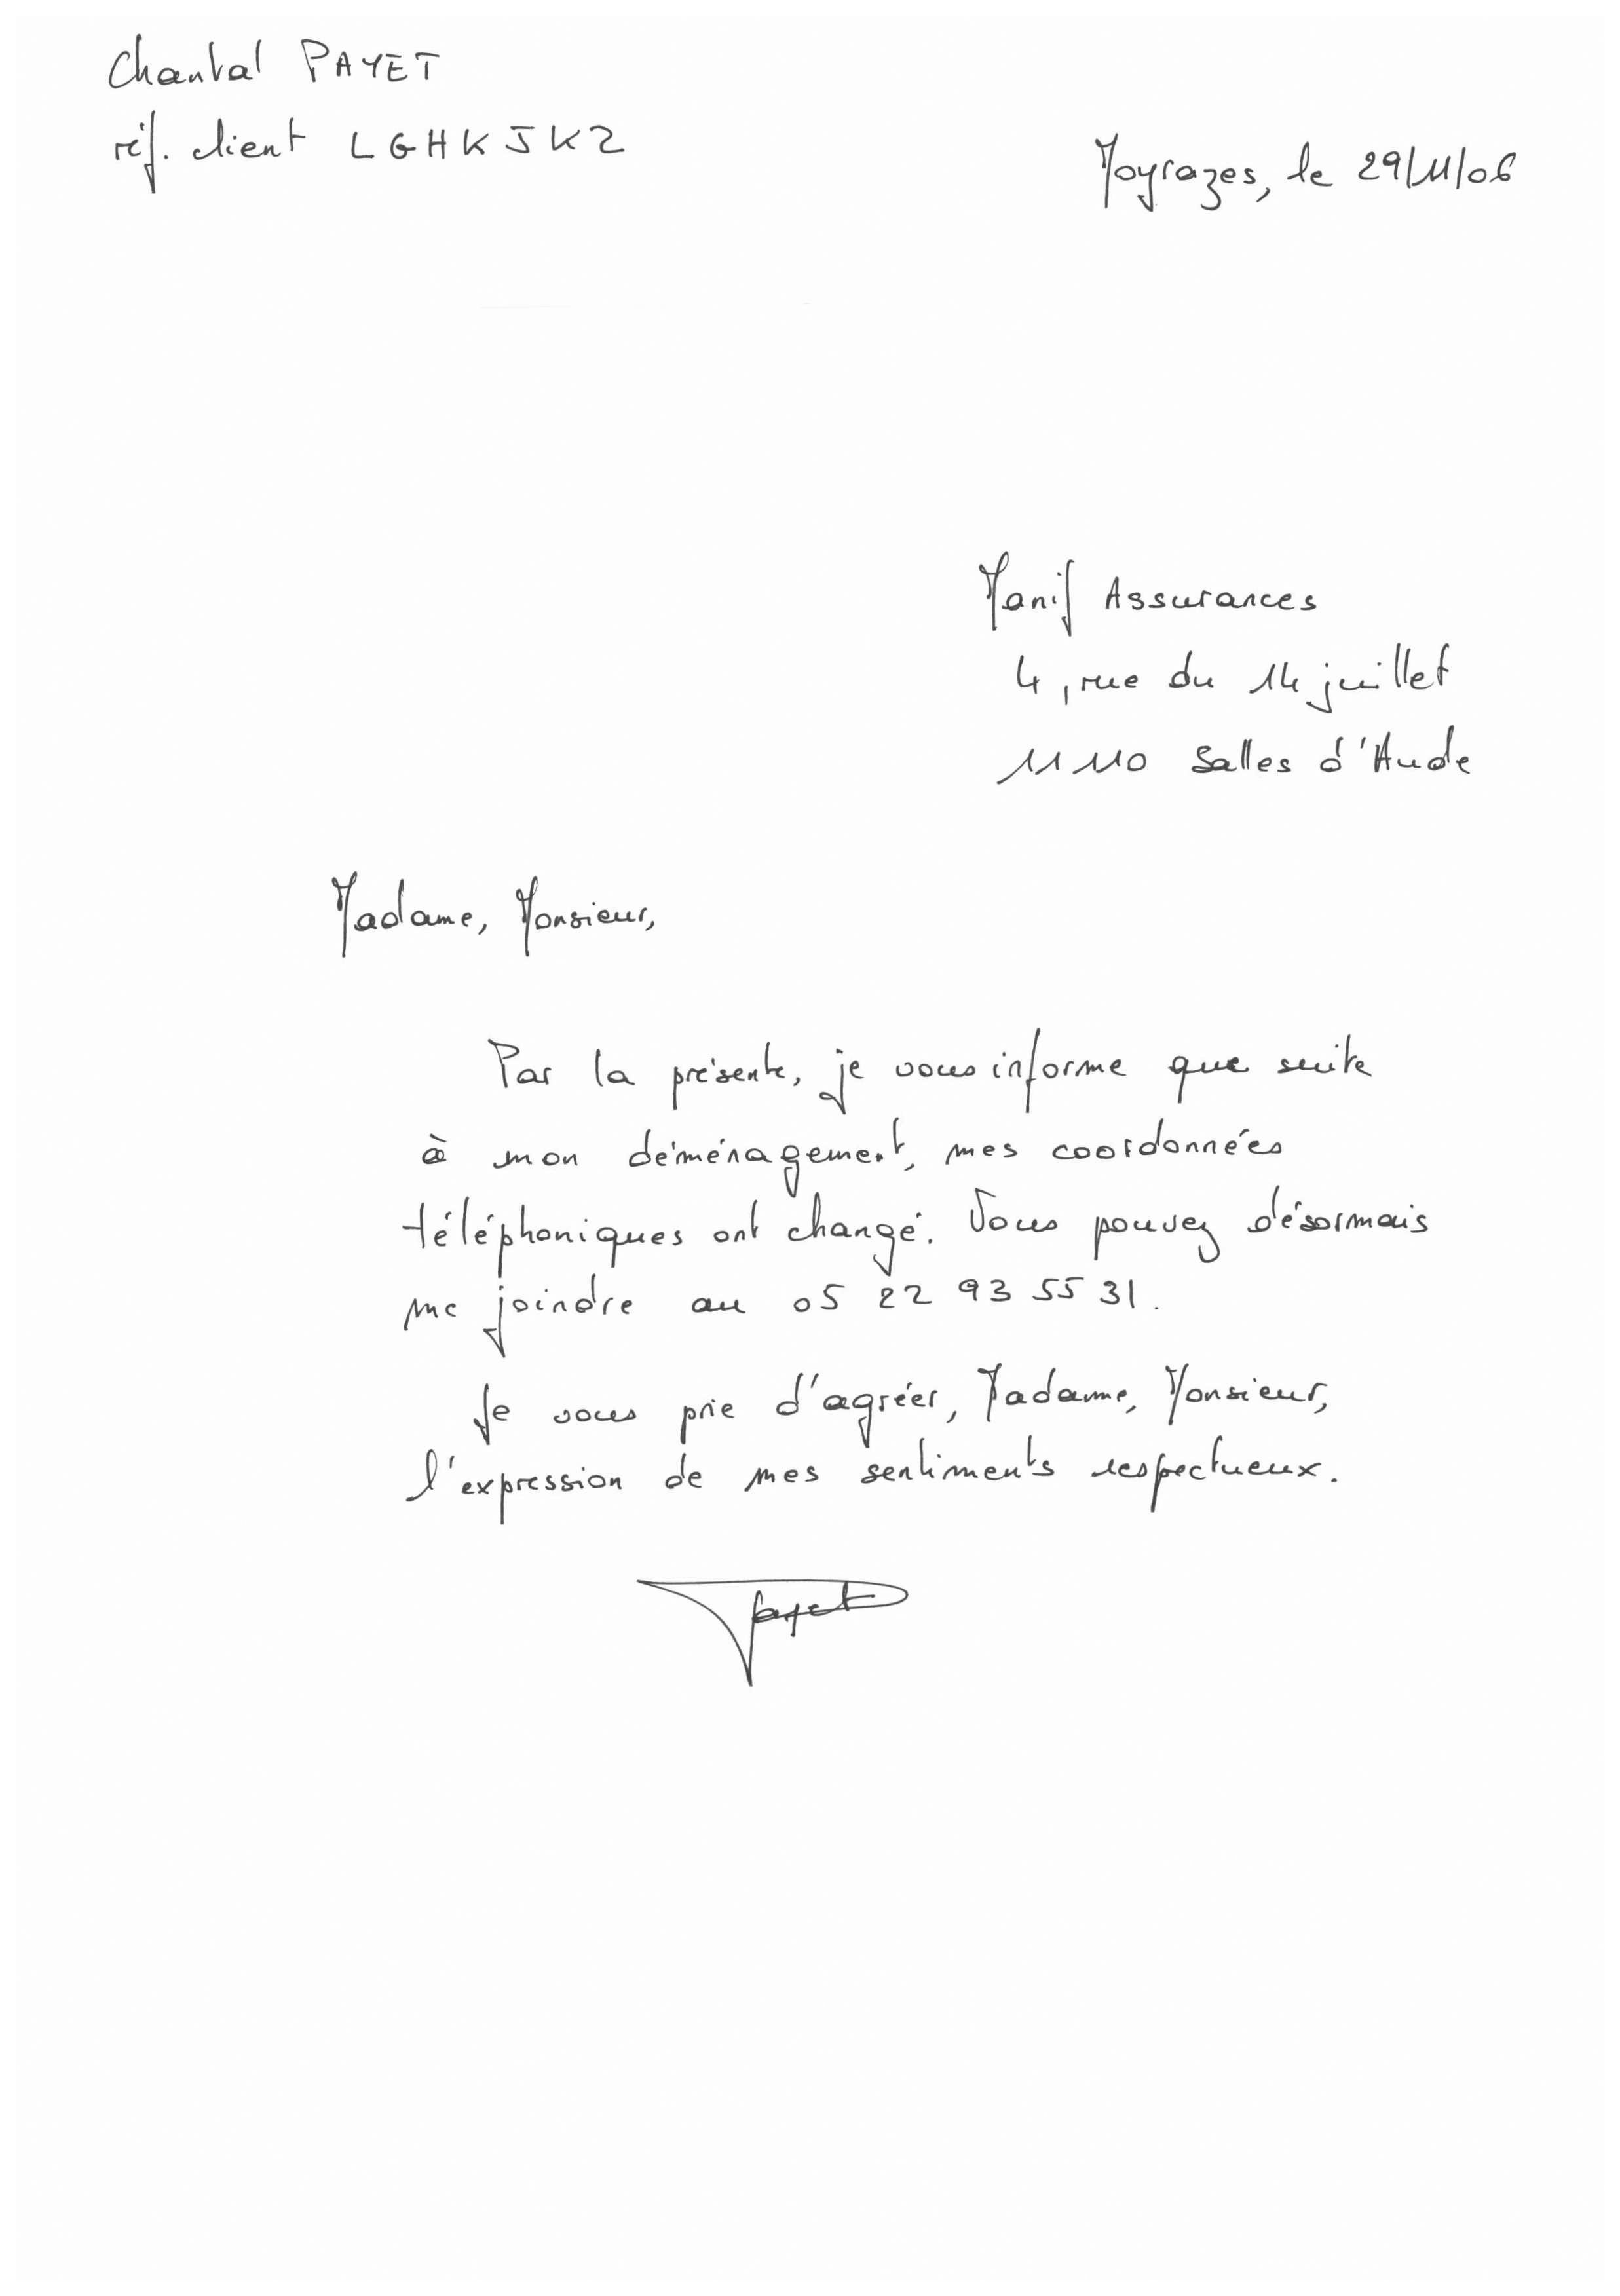 Chantal PAYET
réf. client LGHKJK2
Moyrazes, le 29/11/06
Manif Assurances
4, rue du 14 juillet
11110 Salles d'Aude
Madame, Monsieur,
Par la présente, je vous informe que suite
à mon déménagement, mes coordonnées
téléphoniques ont changé. Vous pouvez désormais
me joindre au 05 22 93 55 31.
Je vous prie d'agréer, Madame, Monsieur,
l'expression de mes sentiments respectueux.
Payet